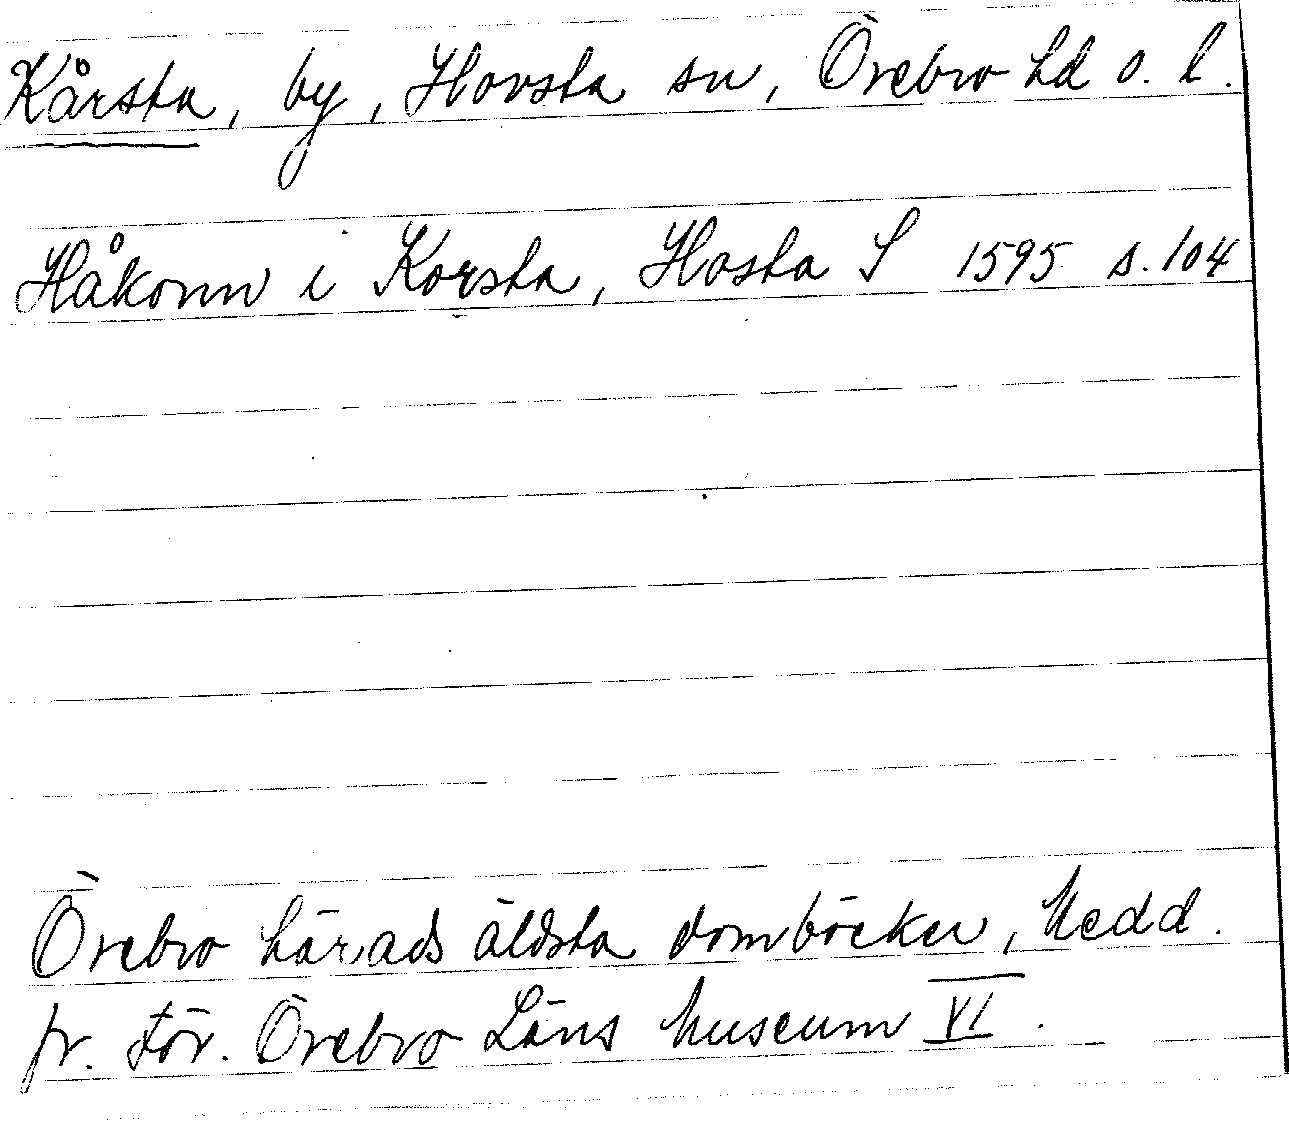 Kårsta, by, Hovsta sn, Örebro hd o. l.
Håkonn i Korsta, Hosta S 1595 s. 104
Örebro härads äldsta domböcker, Medd.
fr. För. Örebro Läns Museum VI.